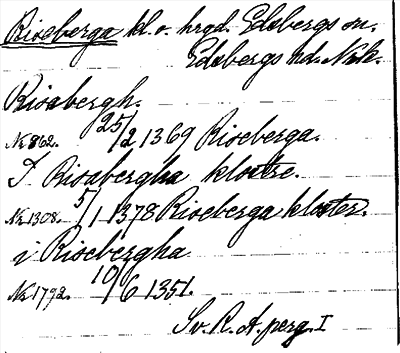 Riseberga kl. o. hrgd. Edsbergs sn.
Edsbergs hd. Nrk.
Risabergh.
Nr 862. 25/2 1369 Riseberga.
I Risabergha klostre.
Nr 1308. 5/1 1378 Riseberga kloster.
i Risebergha
Nr 1792. 10/6 1351.
Sv. R. A. perg. I